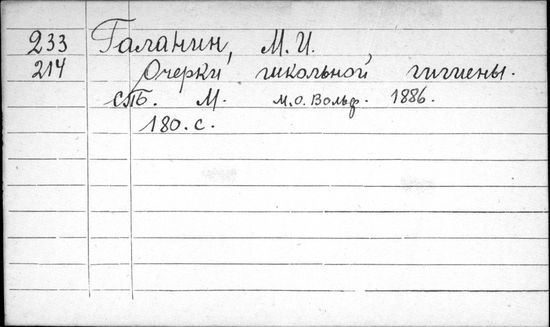 233 Галанин, М.И.
214 Очерки школьной гигиены.
СПБ. М. М.О. Вольф. 1886.
180. с.